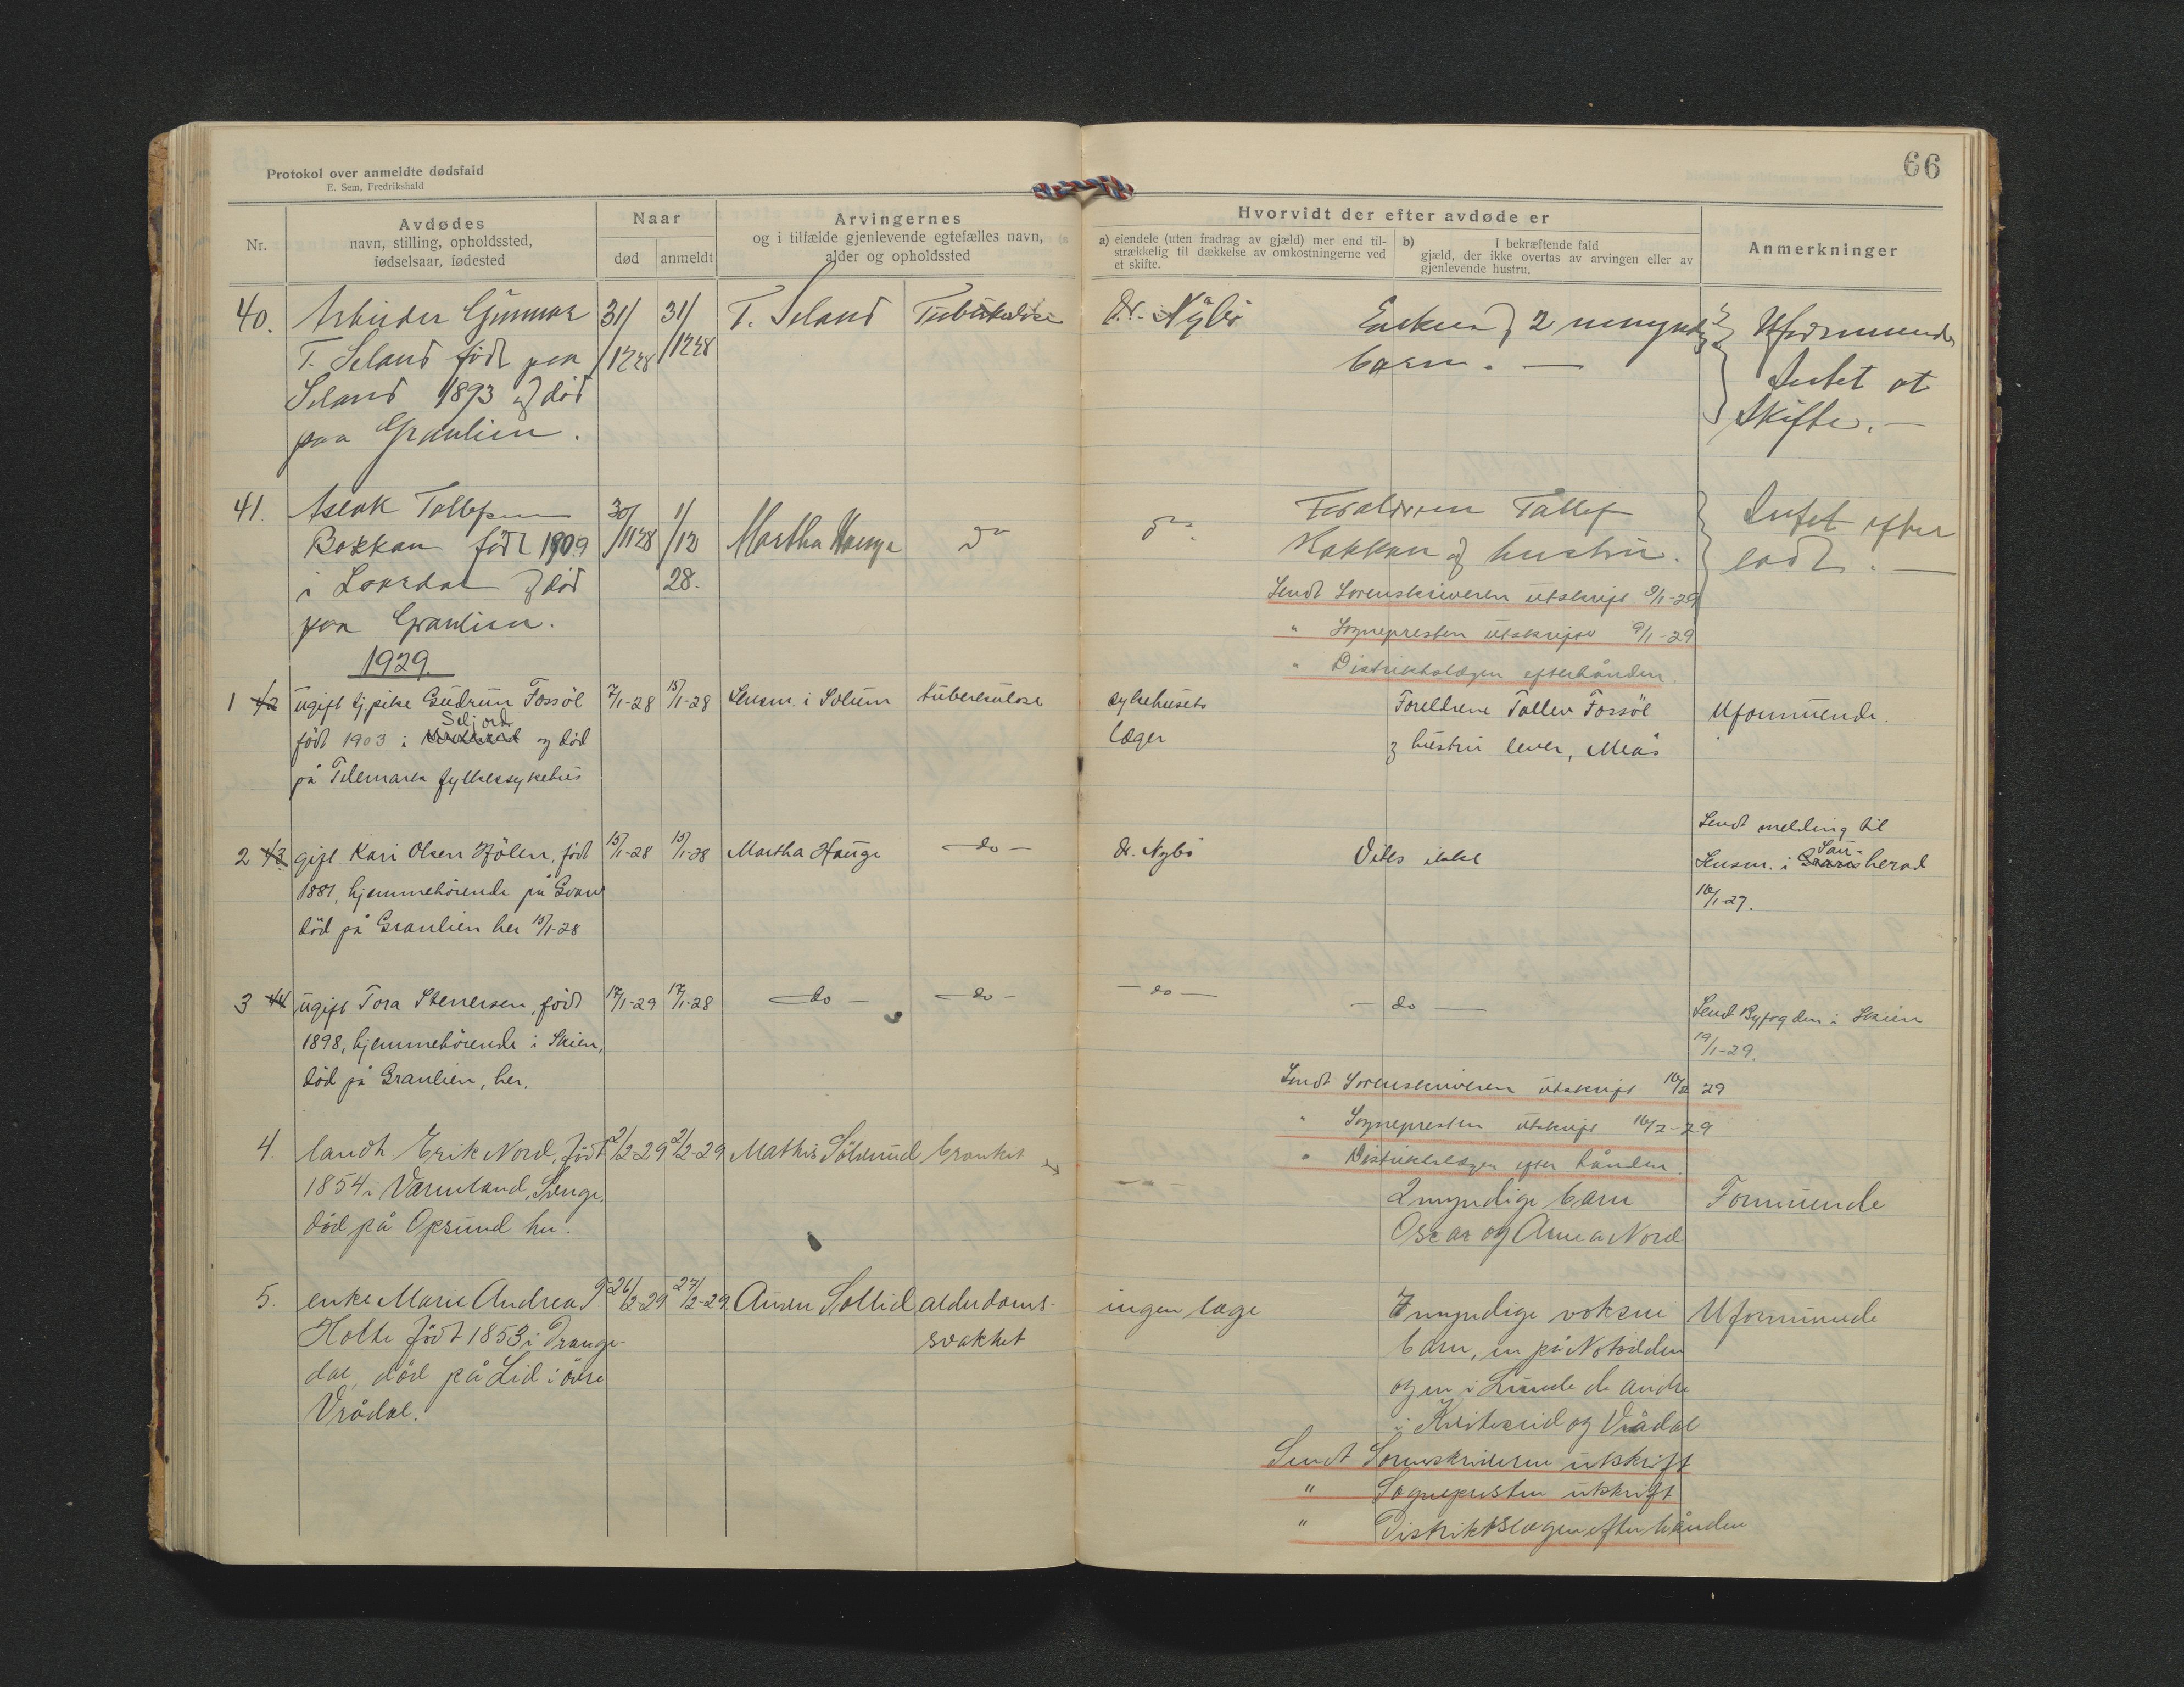 Protokol over anmeldte dødsfald
E. Sem, Fredrikshald
66
Nr.
Avdødes
navn, stilling, opholdssted,
fødselsaar, fødested
Naar
død
anmeldt
Arvingernes
og i tilfælde gjenlevende egtefælles navn,
alder og opholdssted
Hvorvidt der efter avdøde er
a) eiendele (uten fradrag av gjæld) mer end til-
strækkelig til dækkelse av omkostningerne ved
et skifte.
b) I bekræftende fald
gjæld, der ikke overtas av arvingen eller av
gjenlevende hustru.
Anmerkninger
40. Arbeider Gunnar 31/ 31/ T. Seland Tuberkulose Dr. Nybö Enken og 2 umyndig Uformuende
T. Seland födt paa /1228 /1228 barn. — Intet at
Seland 1893 og död Skifte. —
paa Granlien.
41. Aslak Tallefsen 30/ 1/ Foraldrene Tallef Intet efter
Bakkan födt 1909 /1128 /12 Martha Hauge do do Hakkan og hustru. ladt. —
i Laurdal og död 28.
paa Granlien.
Sendt Sorenskriveren utskrift 9/1-29
" Sognepresten utskrift 9/1-29
" Distriktslægen efterhånden.
1929.
1 42 ugift tj.pike Gudrun Fossöl 7/1-28 15/1-28 Lensm. i Solum tuberculose sykehusets Foreldrene Tallev Fossöl Uformuende.
Seljord
födt 1903 i og död læger og hustru lever, Meås
på Telemark fylkessykehus
2 43 gift Kari Olsen Hjölen, födt 15/1-28 15/1-28 Martha Hauge — do — dr. Nybö Vites ikke
Sendt melding til
Lensm. i Sau-herad
16/1-29.
1881, hjemmehörende på Gvarv
död på Granlien her 15/1-28
3 44 ugift Tora Stenersen, födt 17/1-29 17/1-28 — do — — do — — do — — do — Sendt Byfogden i Skien
19/1-29.
1898, hjemmehörende i Skien,
död på Granlien, her.
Sendt Sorenskriveren utskrift 16/2 29
" Sognepresten utskrift 16/2-29
" Distriktslægen efter hånden.
4. landh. Erik Nord, födt 2/2-29 2/2-29 Mathis bronkit
1854 i Varmland, Sverige, 2 myndige barn Formuende
död på Opsund her. Oscar og Anna Nord
5. enke Marie Andrea T. 26/2-29 27/2-29. Aanen Sollid alderdoms- ingen læge 7 myndige voksne Uformuende
Holte födt 1853 i Drange- svakhet barn, en på Notodden
dal, död på Lid i övre og en i Lunde de andre
Vrådal. i Kviteseid og Vrådal
Sendt Sorenskriveren utskrift
" Sognepresten utskrift
" Distriktslægen efter hånden